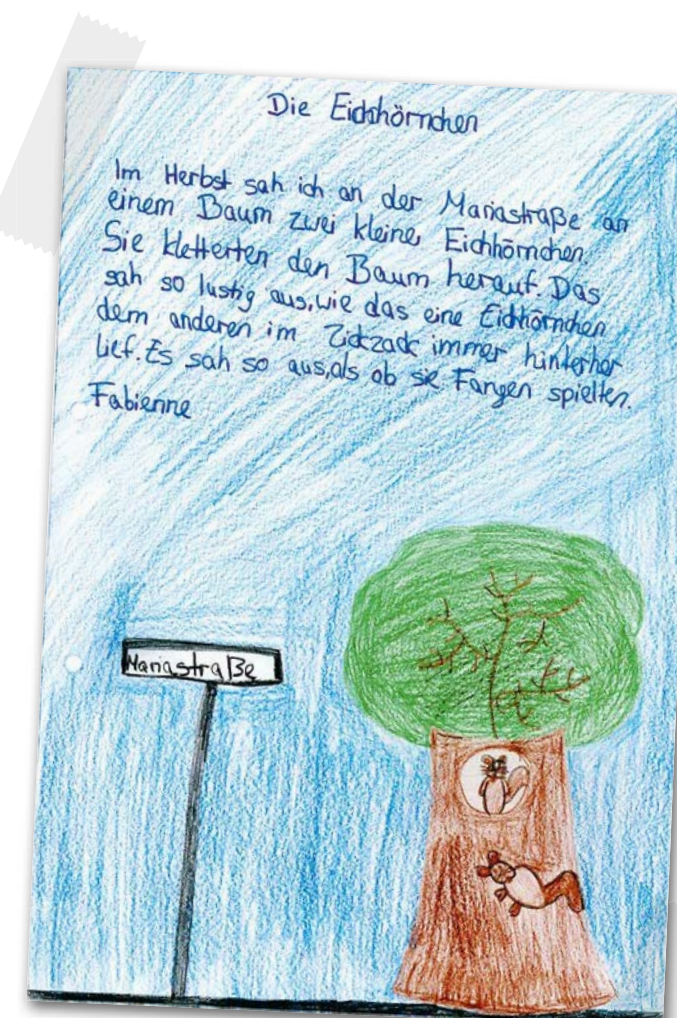 Die Eichhörnchen
Im Herbst sah ich an der Mariastraße an
einem Baum zwei kleine Eichhörnchen.
Sie kletterten den Baum herauf. Das
sah so lustig aus, wie das eine Eichhörnchen
dem anderen im Zickzack immer hinterher
lief. Es sah so aus, als ob sie Fangen spielten.
Fabienne
Mariastraße